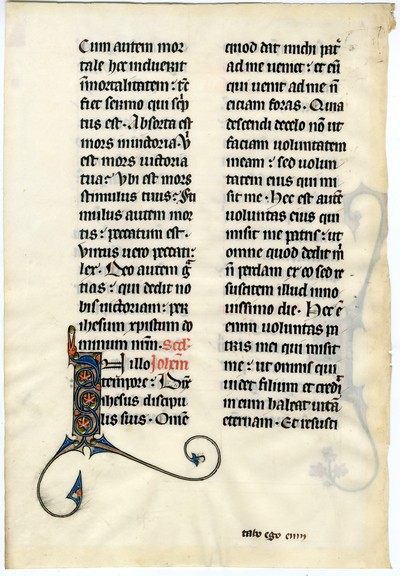 Cum autem mor
tale hoc induerit
inmortalitatem: tc̄
fiet sermo qui scp̄
tus est. Absorta est
mors in uictoria. V
est mors uictoria
tua: Vbi est mors
stimulus tuus: Sti
mulus autem mor
tis: peccatum est.
Virtus uero peccati:
lex. Deo autem g̃
tias: qui dedit no
bis uictoriam: per
ihesum xpistum do
minum nr̄m. Scd̄.
In illo Johem̄
tempore: Dix̄
ihesus discipu
lis suis. Om̄e
quod dat michi pat̄
ad me ueniet: et eū
qui uenit ad me n̄
eiciam foras. Quia
descendi de celo nō ut
faciam uoluntatem
meam: sed volun
tatem eius qui mi
sit me. Hec est aut̄
uoluntas eius qui
misit me patris: ut
omne quod dedit m̄
n̄ perdam ex eo sed re
suscitem illud in no
uissimo die. Hec ē
enim uoluntas pa
tris mei qui misit
me: ut omnis qui
uidet filium et credī
in eum habeat uitā
eternam. Et resusci
tabo ego eum